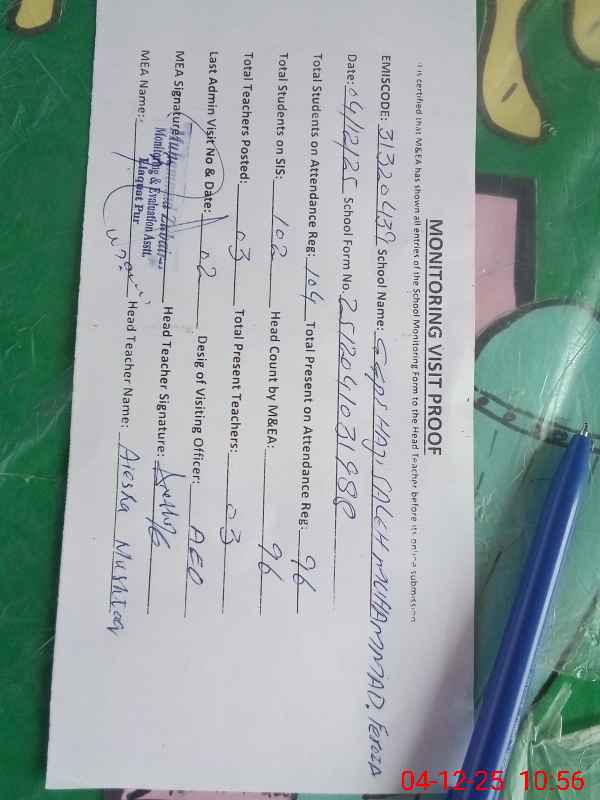 MONITORING VISIT PROOF
It is certified that M&EA has shown all entries of the School Monitoring Form to the Head Teacher before its online submission
EMISCODE: 31320439 School Name: GGPS HAJI SALEH MUHAMMAD. Feroza
Date: 04/12/25 School Form No. 2512041031988
Total Students on Attendance Reg: 104 Total Present on Attendance Reg: 96
Total Students on SIS: 102 Head Count by M&EA: 96
Total Teachers Posted: 03 Total Present Teachers: 03
Last Admin Visit No & Date: 02 Desig of Visiting Officer: AEO
MEA Signature: Head Teacher Signature:
Muhammad Zubair
Monitoring & Evaluation Asstt.
Liaquat Pur
MEA Name: Head Teacher Name: Aiesha Mushtaq
04-12-25 10:56